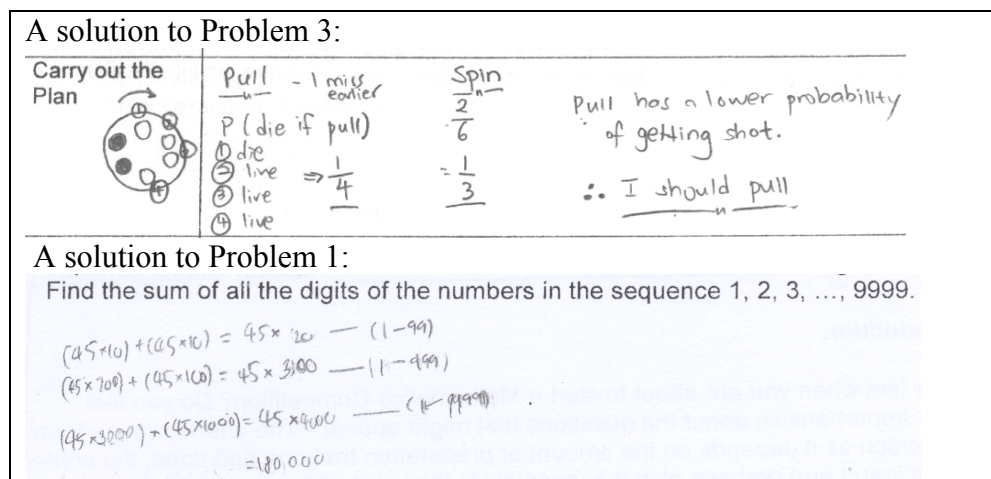 A solution to Problem 3:
Carry out the Plan
① ② ③ ④
Pull - 1 miss earlier
P (die if pull)
① die
② live ⇒ 1/4
③ live
④ live
Spin
2/6
= 1/3
Pull has a lower probability
of getting shot.
∴ I should pull
A solution to Problem 1:
Find the sum of all the digits of the numbers in the sequence 1, 2, 3, ..., 9999.
(45×10) + (45×10) = 45× 20 — (1-99)
(45×200) + (45×100) = 45× 300 — (1-999)
(45×3000) + (45×1000) = 45×4000 — (1-9999)
= 180,000